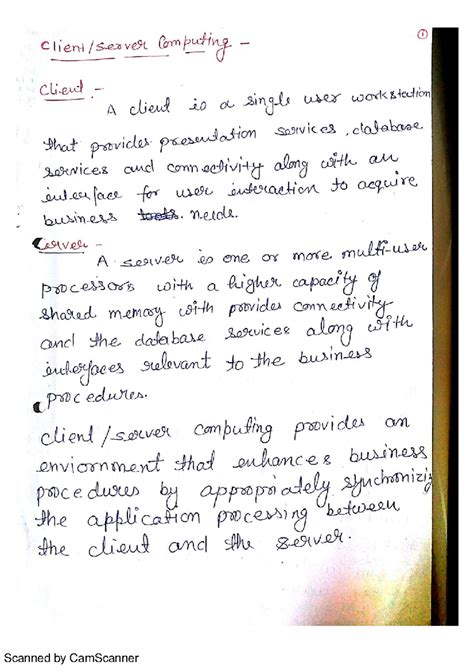 ①
Client/Server Computing -
Client -
A client is a single user workstation
that provides presentation services, database
services and connectivity along with an
interface for user interaction to acquire
business needs.
Server -
A server is one or more multi-user
processors with a higher capacity of
shared memory with provides connectivity
and the database services along with
interfaces relevant to the business
procedures.
Client/server computing provides an
enviornment that enhances business
procedures by appropriately synchronizing
the application processing between
the client and the server.
Scanned by CamScanner